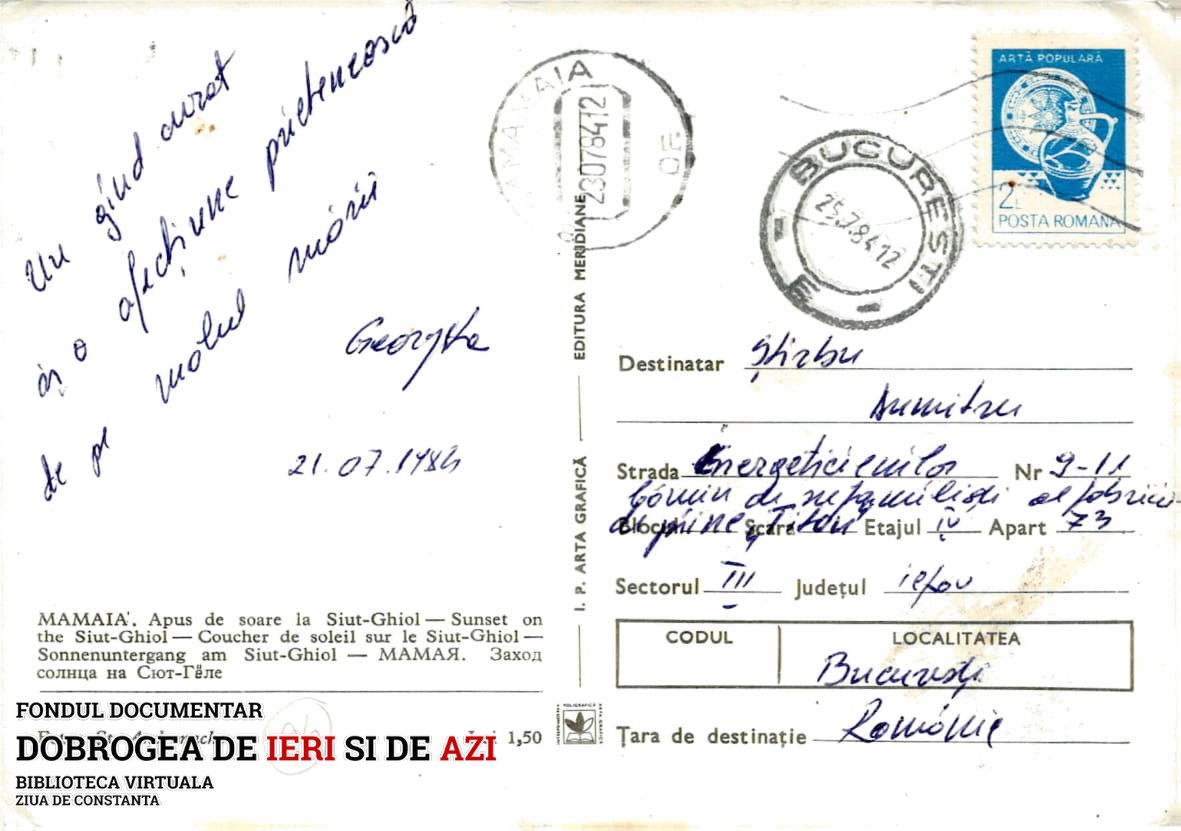 Un gînd curat
și o afecțiune prietenească
de pe malul mării
Georgeta
21.07.1984
MAMAIA. Apus de soare la Siut-Ghiol — Sunset on
the Siut-Ghiol — Coucher de soleil sur le Siut-Ghiol —
Sonnenuntergang am Siut-Ghiol — МАМАЯ. Заход
солнца на Сют-Гёле
Lei 1,50
FONDUL DOCUMENTAR
DOBROGEA DE IERI SI DE AZI
BIBLIOTECA VIRTUALA
ZIUA DE CONSTANTA
I. P. ARTA GRAFICĂ — EDITURA MERIDIANE
MAMAIA
23078412
BUCUREȘTI
25.7.84 12
E
ARTĂ POPULARĂ
2L
POSTA ROMANA
Destinatar Știrbu
Dumitru
Strada Energeticienilor Nr 9-11
Cămin de nefamiliști al fabricii
de pîine „Titan"
Blocul Scara Etajul IV Apart 73
Sectorul III Județul ilfov
CODUL LOCALITATEA
București
Țara de destinație România